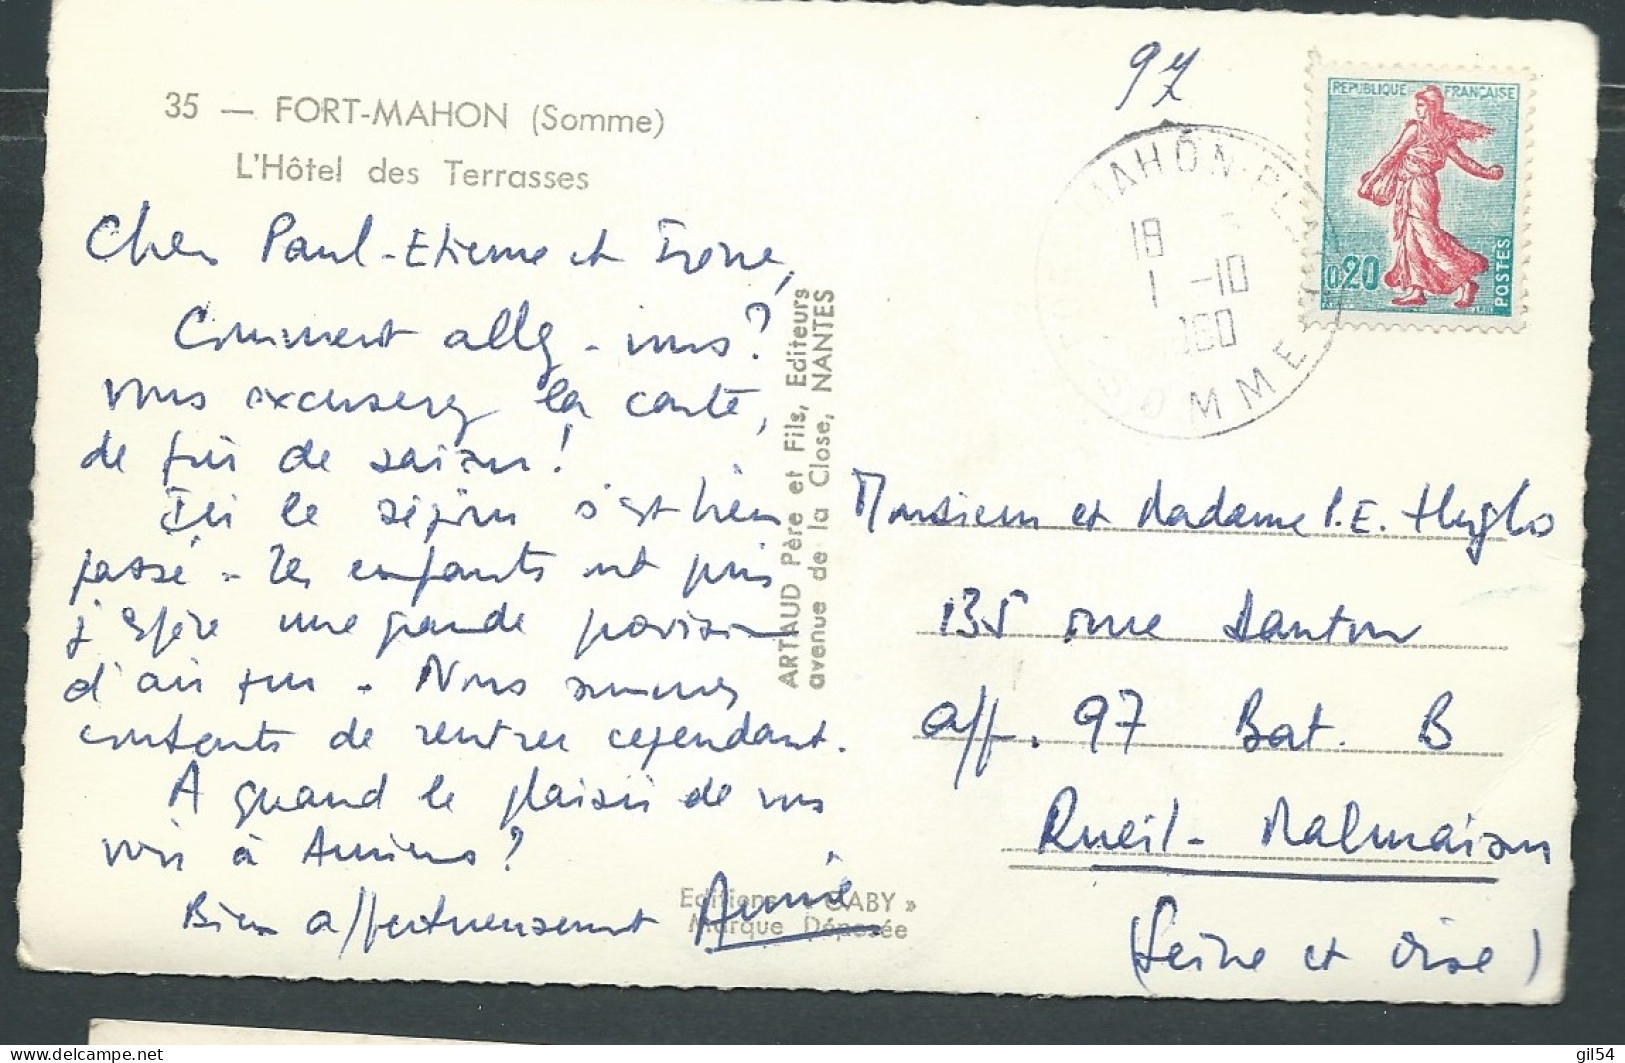 35 — FORT-MAHON (Somme)
L'Hôtel des Terrasses
Cher Paul-Etienne et Irène,
Comment allez-vous?
vous excuserez la carte,
de fin de saison!
Ici le séjour s'est bien
passé - Les enfants ont pris
j'espère une grande provision
d'air pur - Nous sommes
contents de rentrer cependant.
A quand le plaisir de vous
voir à Amiens?
Bien affectueusement Annie
Editions « GABY »
Marque Déposée
ARTAUD Père et Fils, Editeurs
avenue de la Close, NANTES
97
MAHON-PL
18
1 -10
1960
SOMME
REPUBLIQUE FRANÇAISE
0,20
POSTES
Monsieur et Madame P.E. Huglo
135 rue Danton
app. 97 Bat. B
Rueil-Malmaison
(Seine et Oise)
delcampe.net
gil54